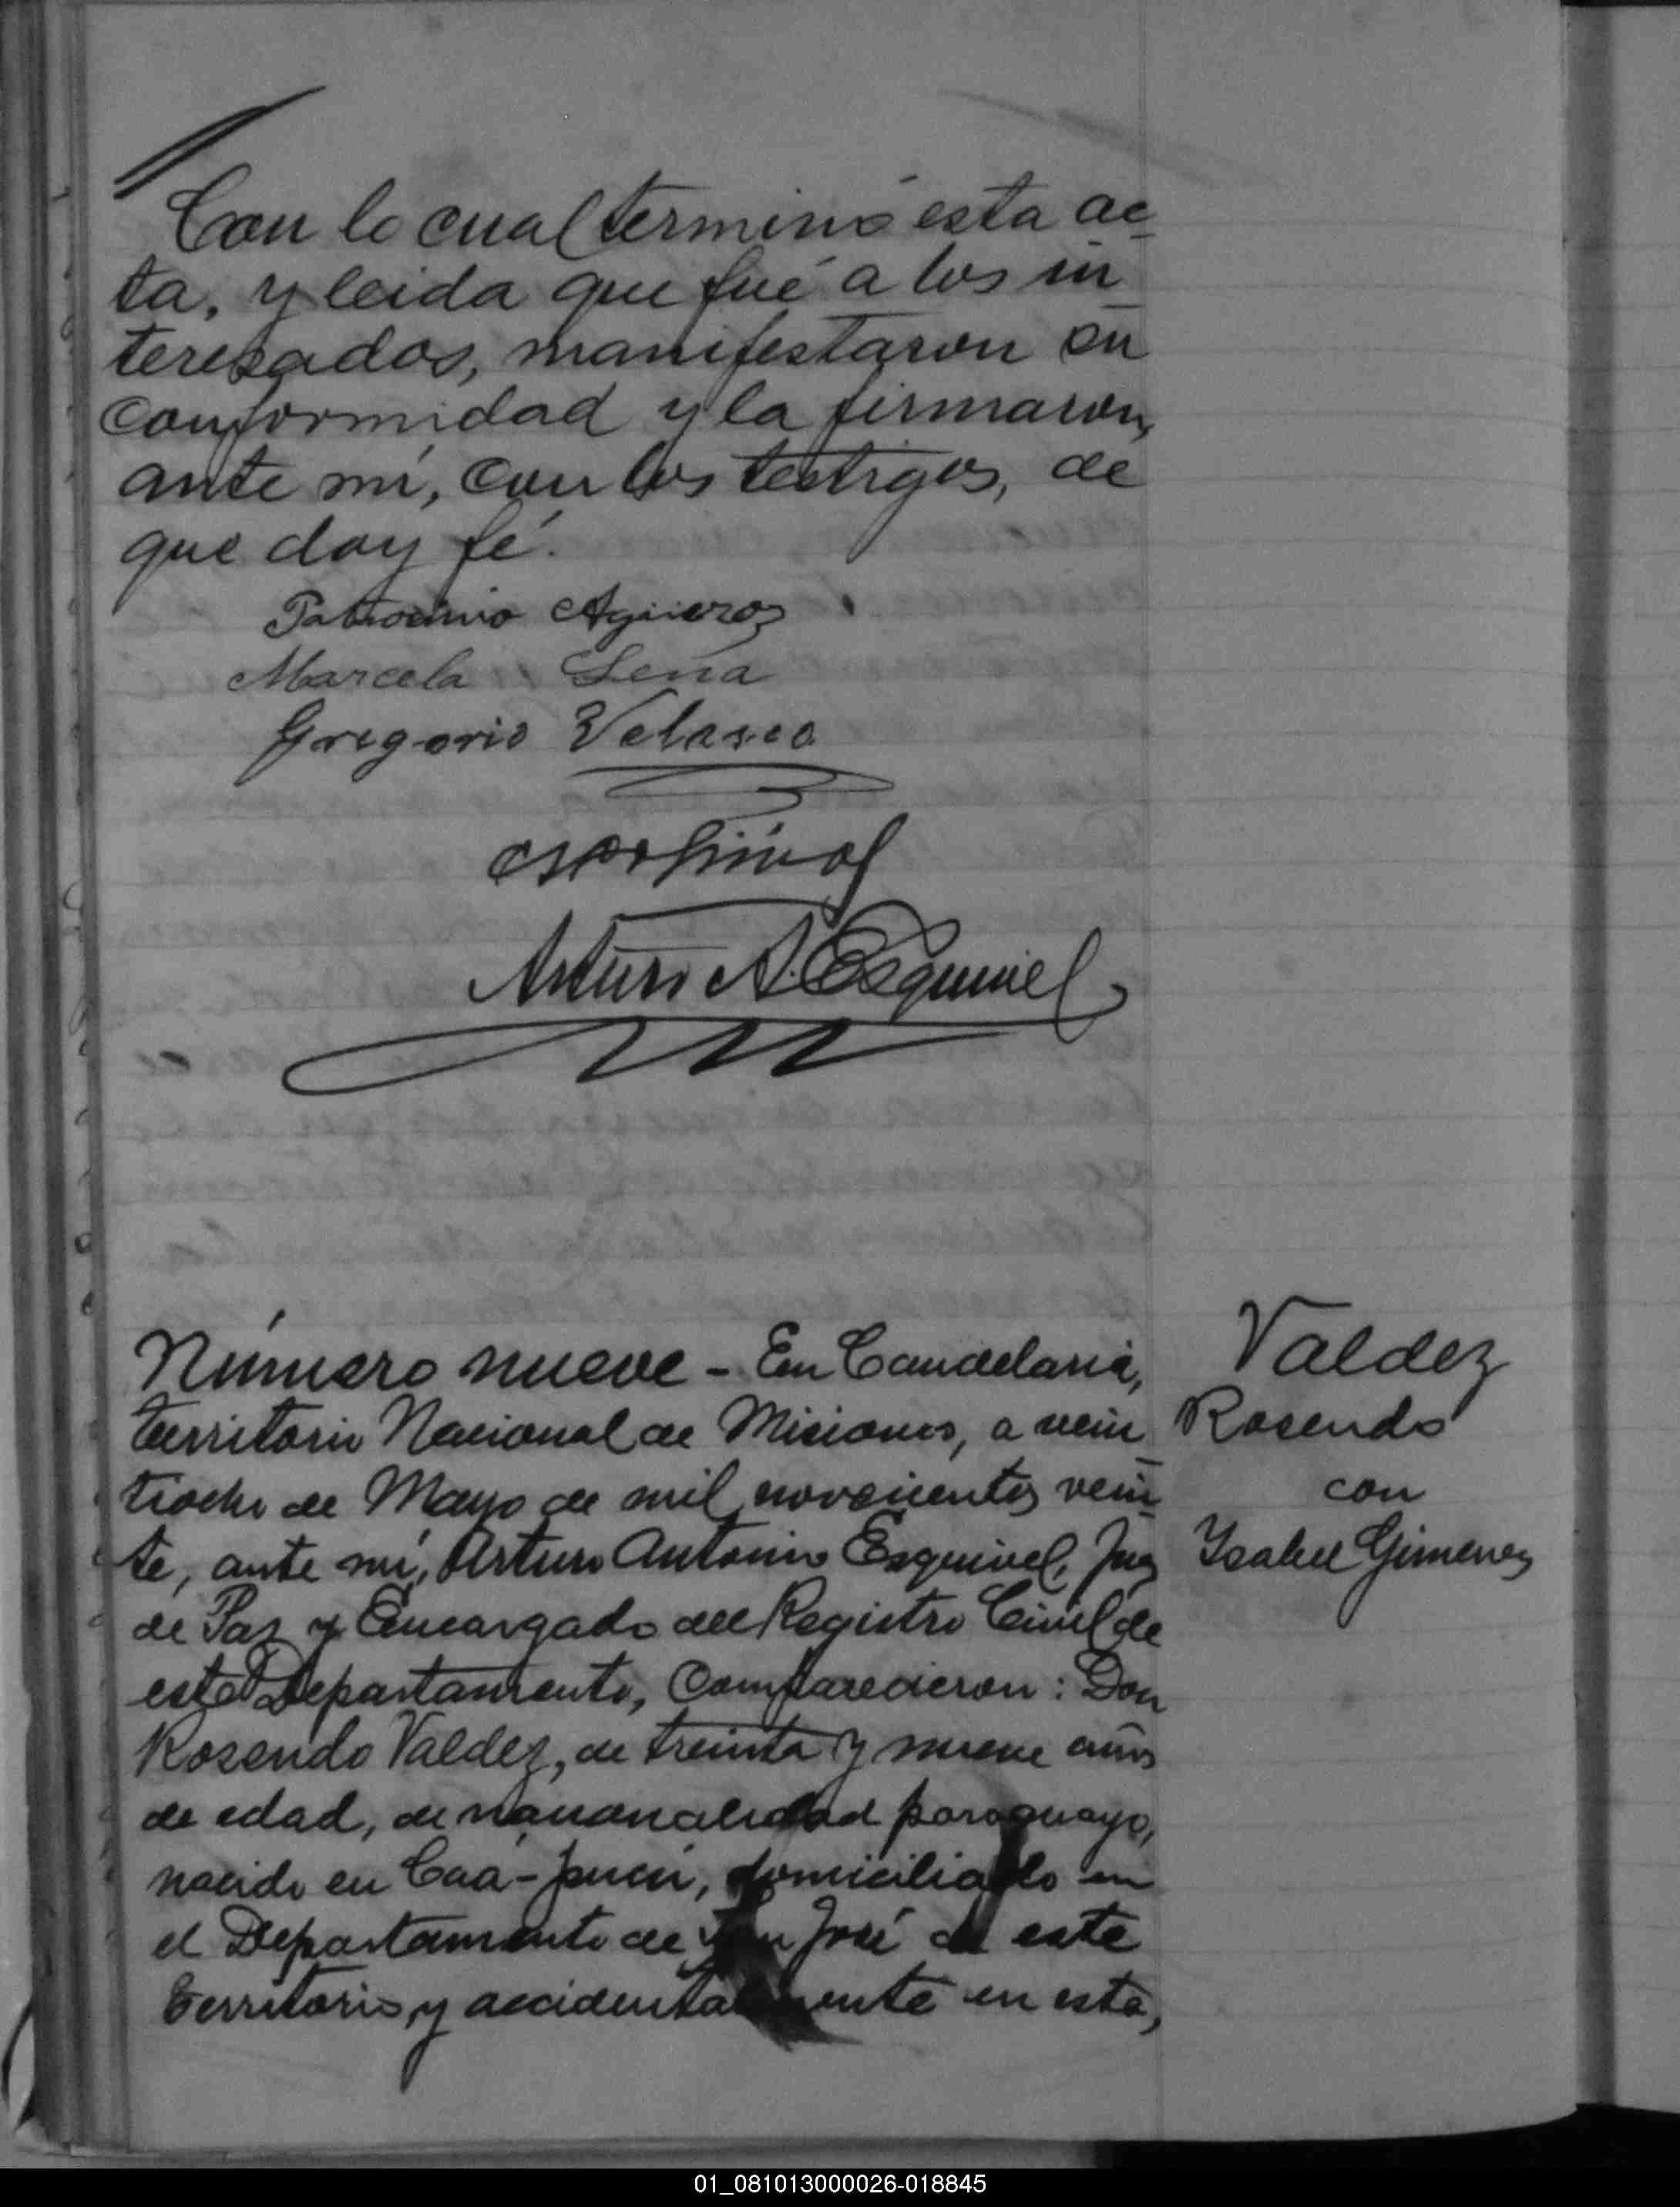 Con lo cual terminó esta ac-
ta, y leida que fué a los in-
teresados, manifestaron su
conformidad y la firmaron,
ante mí, con los testigos, de
que doy fé.
Patrocinio Agüero
Marcela Lena
Gregorio Velasco
Arturo A. Esquivel
Número nueve - En Candelaria,
Territorio Nacional de Misiones, a vein-
tiocho de Mayo de mil novecientos vein-
te, ante mí, Arturo Antonio Esquivel, Juez
de Paz y Encargado del Registro Civil de
este Departamento, Comparecieron: Don
Rosendo Valdez, de treinta y nueve años
de edad, de nacionalidad paraguayo,
nacido en Caá-pucú, domiciliado en
el Departamento de San José de este
Territorio, y accidentalmente en esta,
Valdez
Rosendo
con
Isabel Gimenez
01_081013000026-018845